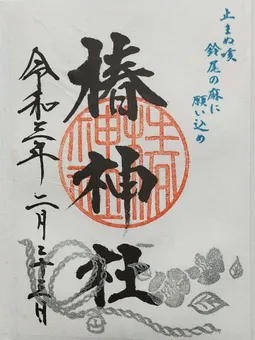 止まぬ咳
鈴尾の麻に
願い込め
椿神社
令和三年 二月二十三日